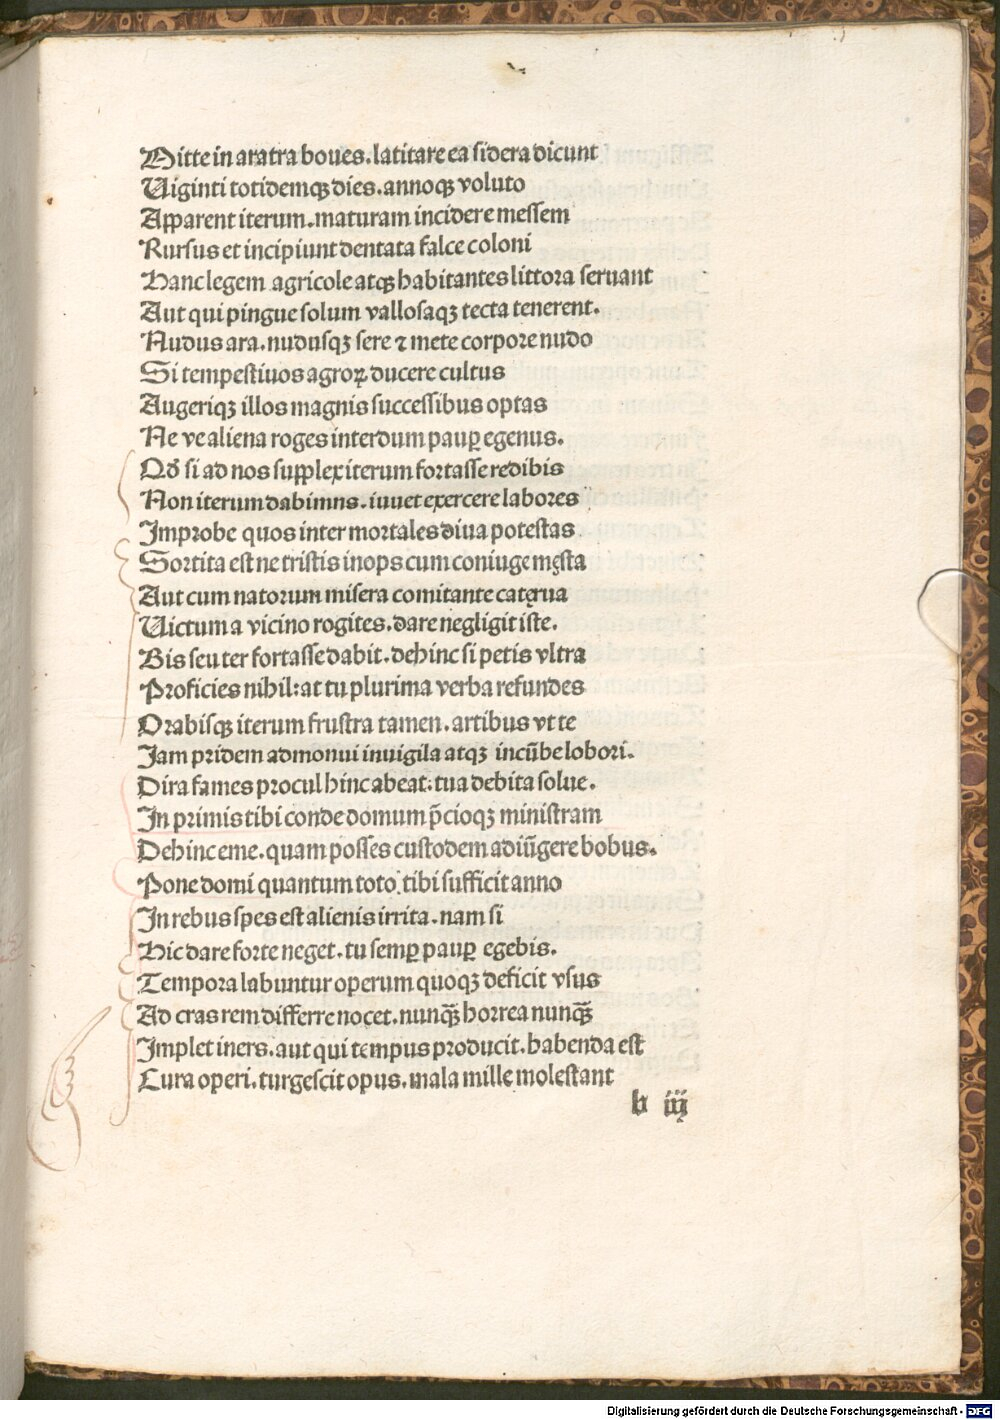 Mitte in aratra boues. latitare ea sidera dicunt
Uiginti totidemqꝫ dies. annoqꝫ voluto
Apparent iterum. maturam incidere messem
Rursus et incipiunt dentata falce coloni
Hanc legem agricole atqꝫ habitantes littora seruant
Aut qui pingue solum vallosaqꝫ tecta tenerent.
Nudus ara. nudusqꝫ sere ⁊ mete corpore nudo
Si tempestiuos agroꝝ ducere cultus
Augeriqꝫ illos magnis successibus optas
Ne ve aliena roges interdum paup̲ egenus.
Qđ si ad nos supplex iterum fortasse redibis
Non iterum dabimns. iuuet exercere labores
Improbe quos inter mortales diua potestas
Sortita est ne tristis inops cum coniuge męsta
Aut cum natorum misera comitante catęrua
Uictum a vicino rogites. dare negligit iste.
Bis seu ter fortasse dabit. dehinc si petis vltra
Proficies nihil: at tu plurima verba refundes
Orabisqꝫ iterum frustra tamen. artibus vt te
Jam pridem admonui inuigila atqꝫ incūbe lobori.
Dira fames procul hinc abeat: tua debita solue.
In primis tibi conde domum p̄cioqꝫ ministram
Dehinc eme. quam posses custodem adiūgere bobus.
Pone domi quantum toto tibi sufficit anno
In rebus spes est alienis irrita. nam si
Hic dare forte neget. tu semp̲ paup̲ egebis.
Tempora labuntur operum quoqꝫ deficit vsus
Ad cras rem differre nocet. nunq̄ꝫ horrea nunq̄ꝫ
Implet iners. aut qui tempus producit. habenda est
Cura operi. turgescit opus. mala mille molestant
b iij
Digitalisierung gefördert durch die Deutsche Forschungsgemeinschaft - DFG